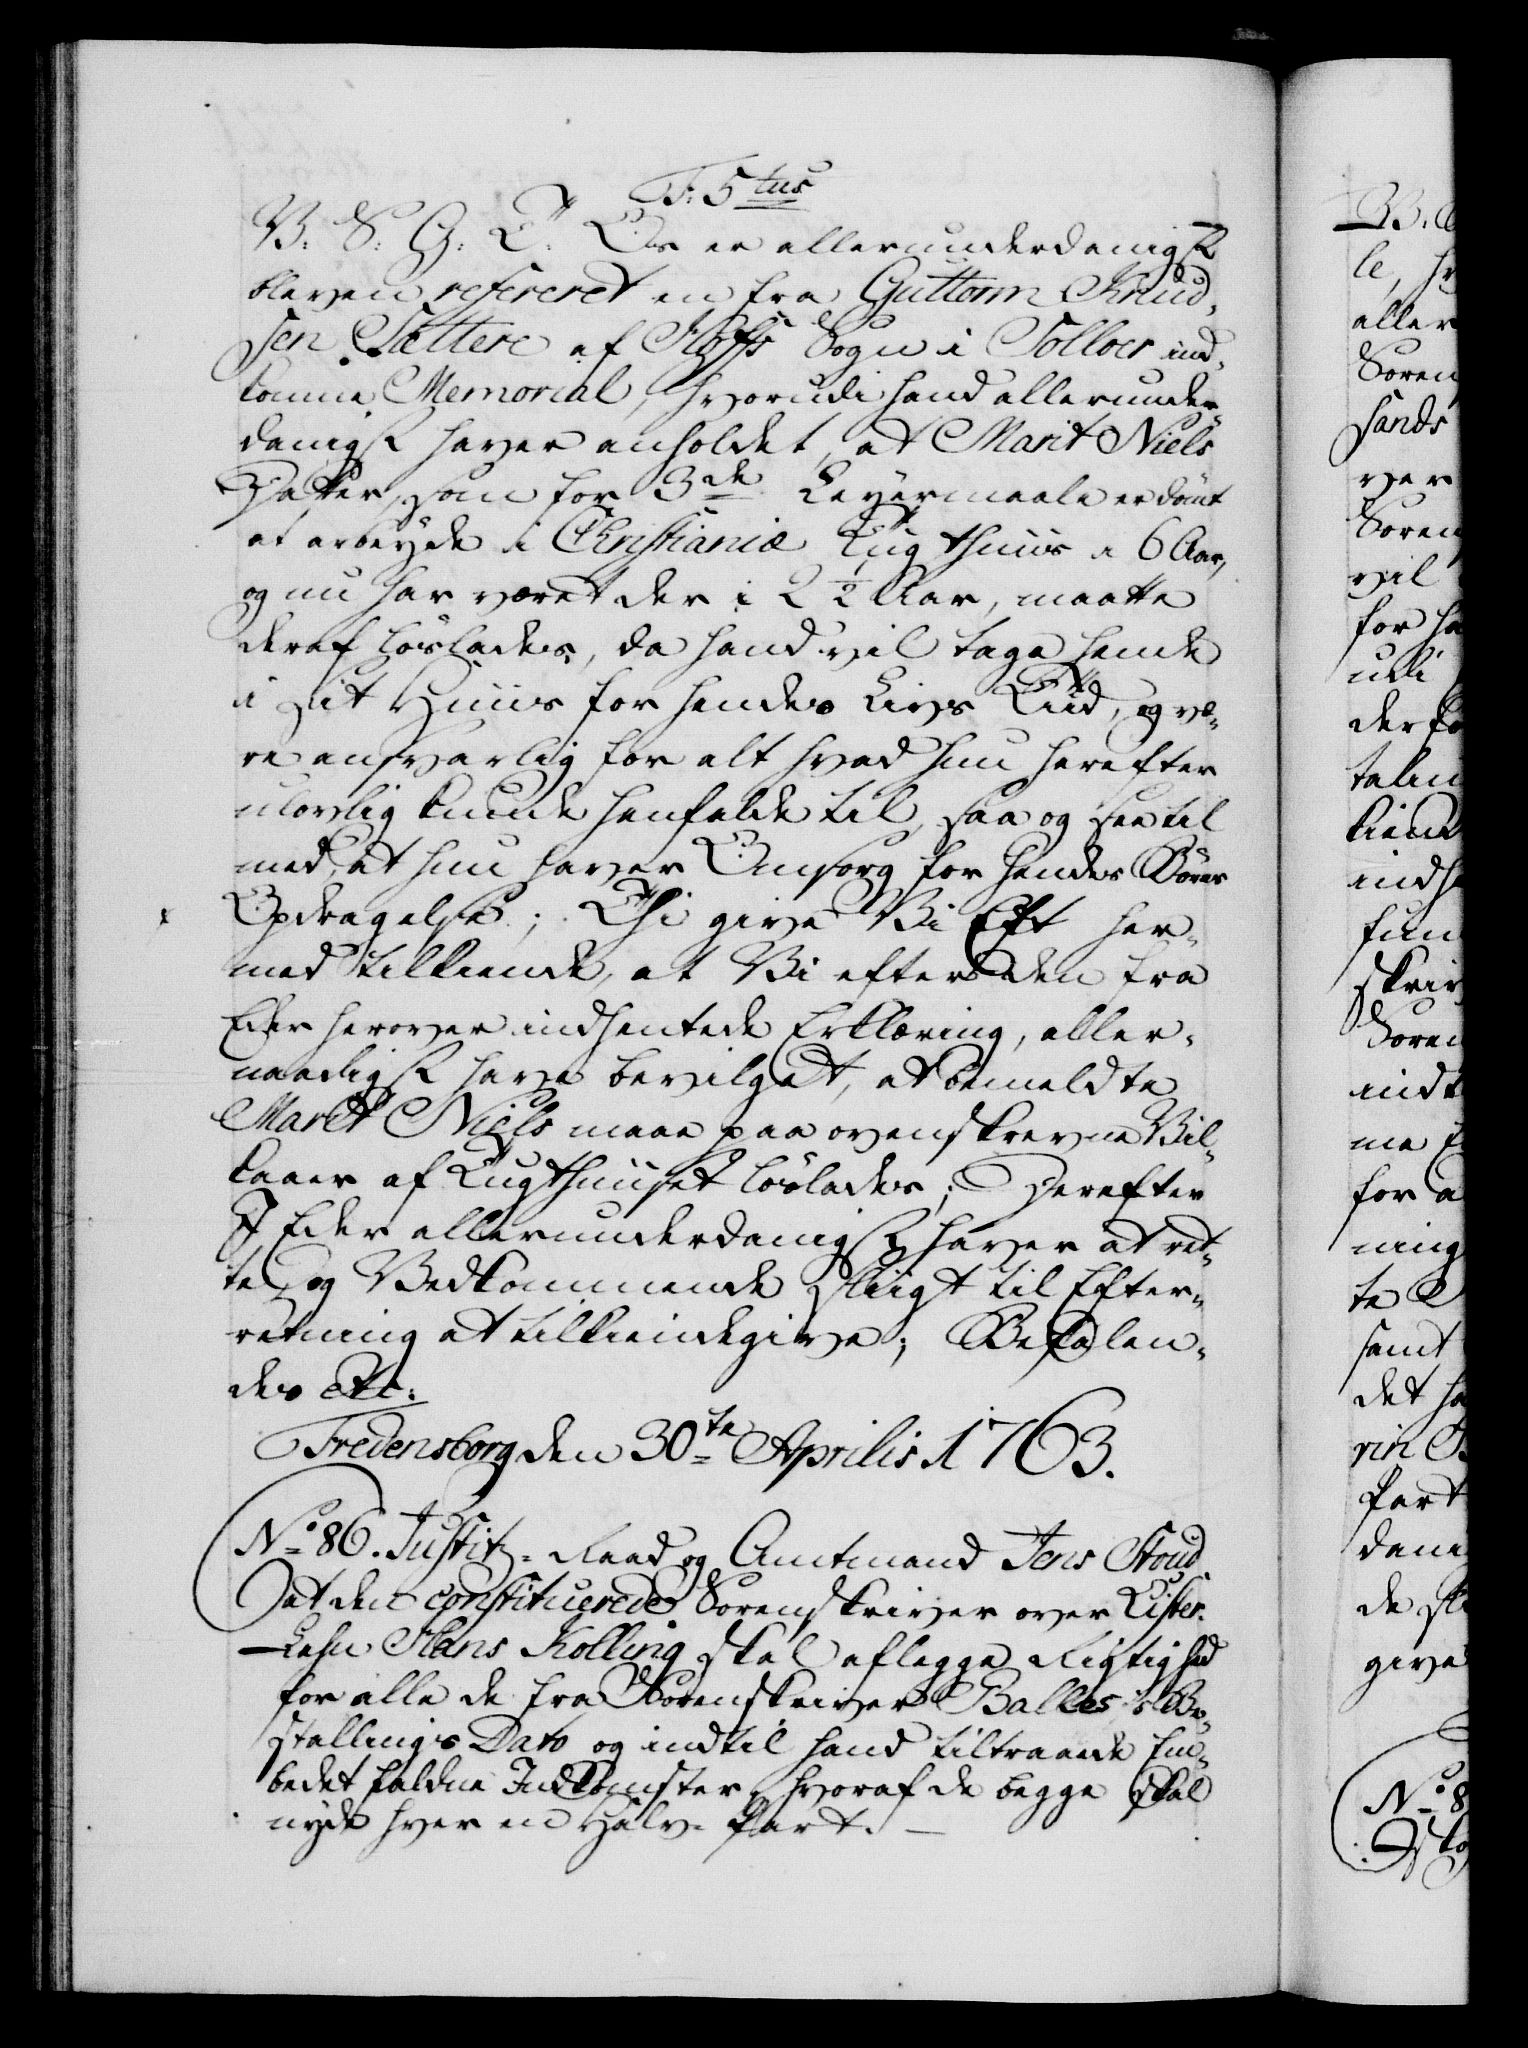 F: 5tus
V: S: G: T: Os er allerunderdanigst
bleven refereret en fra Guttorm Knud-
sen Sættere af Hoffs Sogn i Solloer ind-
komne Memorial, hvorudi hand allerunder-
danigst haver anholdet, at Marit Niels
Datter, som for 3de Leyermaale er dømt
at arbeyde i Christianiæ Tugthuus i 6 Aar,
og nu har været der i 2 1/2 Aar, maatte
deraf løslades, da hand vil tage hende
i sit Huus for hendes Livs Tiid, og væ-
re ansvarlig for alt hvad hun herefter
ulovlig kunde henfalde til, saa og see til
med, at hun haver Omsorg for hendes Børns
Opdragelse; Thi give Vi Eft her-
med tilkiende, at Vi efter den fra
Eder herover indhentede Erklæring, aller-
naadigst have bevilget, at bemeldte
Maret Niels maae paa ovenskrevne Vil-
kaar af Tugthuuset løslades; Derefter
I Eder allerunderdanigst haver at ret-
te, og Vedkommende sligt til Efter-
retning at tilkiendegive; Befalen-
des etc:
Fredensborg den 30te Aprilis 1763.
No 86. Justitz-Raad og Amtmand Jens Stoud
at den constituerede Sorenskriver over Lister-
Lehn Hans Kolling skal aflegge Rigtighed
for alle de fra Sorenskriver Balles's Be-
stallings Dato og indtil hand tiltraade Em-
bedet faldne Indkomster, hvoraf de begge skal
nyde hver en Halv-Part.